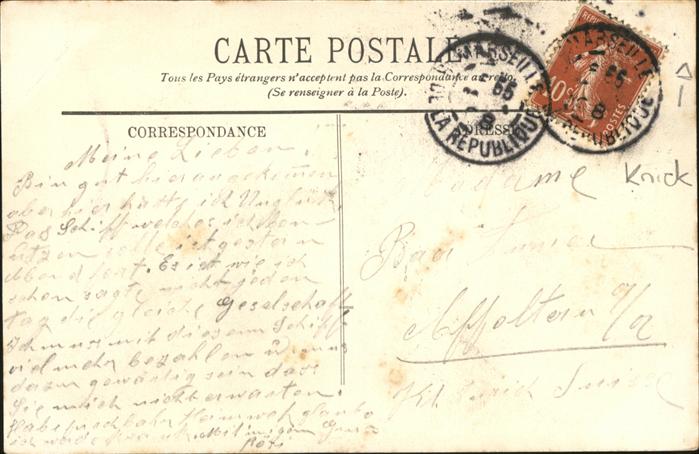 CARTE POSTALE
Tous les Pays étrangers n'acceptent pas la Correspondance au recto.
(Se renseigner à la Poste).
CORRESPONDANCE
ADRESSE
MARSEILLE
LA RÉPUBLIQUE
MARSEILLE
RÉPUBLIQUE
10
POSTES
Knick
Meine Lieben!
Bin gut hier angekommen
aber hier hatte ich Unglück
Das Schiff welches ich ben-
ützen sollte ist gestern
Abend fort. Es ist wie ich
schon sagte nicht jeden
tag die gleiche Geselschaft
Ich muss mit diesem Schiff
viel mehr bezahlen u. muss
darum gewärtig sein dass
Sie mich nicht erwarten.
Habe Heimweh glaube
ich werde Mit
Rosi
Madame
Affoltern a/A
Kt. Zürich Suisse